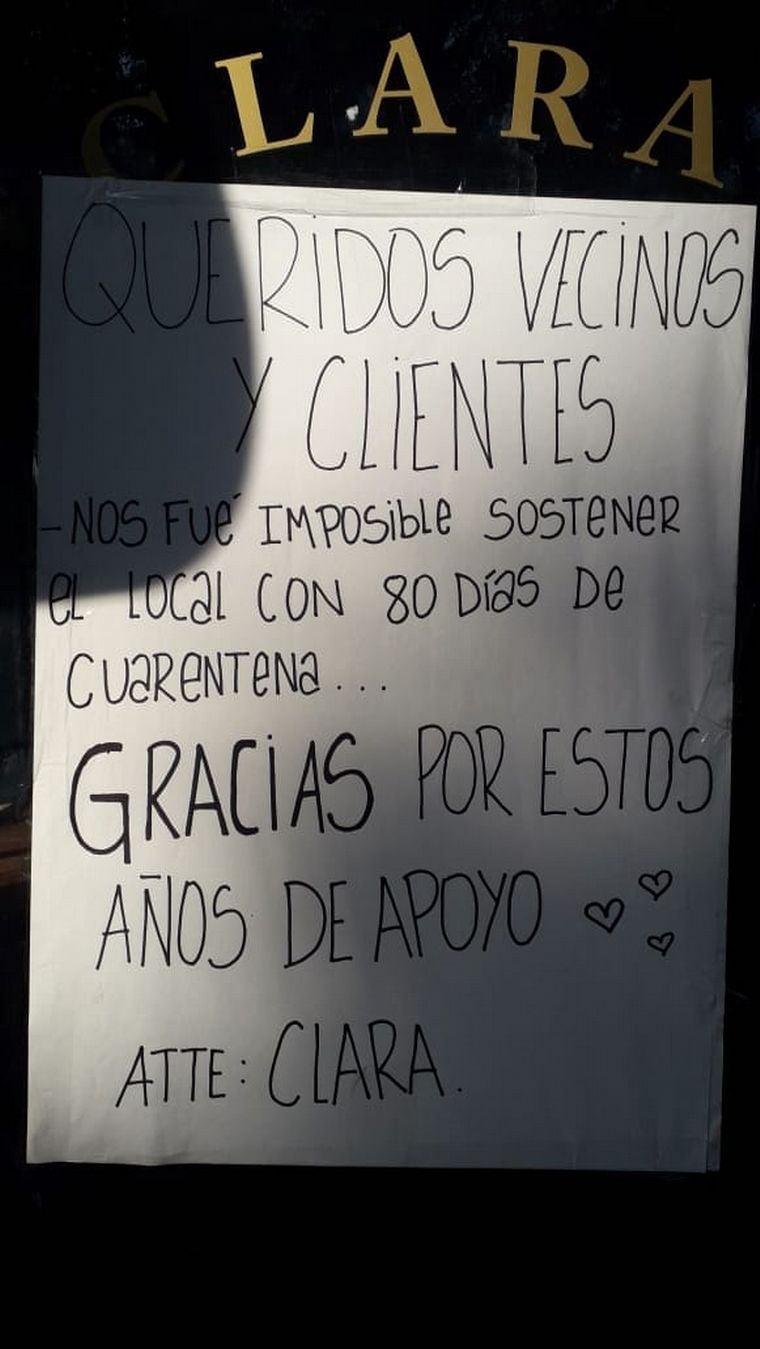 CLARA
QUERIDOS VECINOS
Y CLIENTES
-NOS FUÉ IMPOSIBLE SOSTENER
EL LOCAL CON 80 DÍAS DE
CUARENTENA...
GRACIAS POR ESTOS
AÑOS DE APOYO ♡♡♡
ATTE: CLARA.